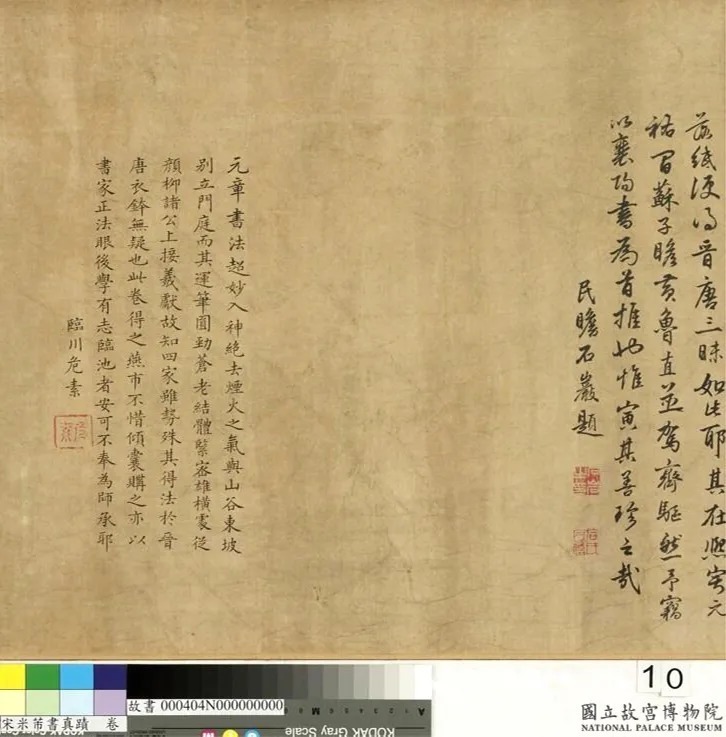 茲紙便得晉唐三昧如此耶其在熙寧元
祐間蘇子瞻黃魯直並駕齊驅然予竊
以襄陽書為首推也惟寅其善珍之哉
民瞻石巖題
元章書法超妙入神絕去煙火之氣與山谷東坡
別立門庭而其運筆圓勁蒼老結體緊密雄橫寔從
顏柳諸公上接羲獻故知四家雖勢殊其得法於晉
唐衣鉢無疑也此卷得之燕市不惜傾囊購之亦以
書家正法眼後學有志臨池者安可不奉為師承耶
臨川危素
危素
10
故書 000404N000000000
宋米芾書真蹟 卷
KODAK Gray Scale
國立故宮博物院
NATIONAL PALACE MUSEUM